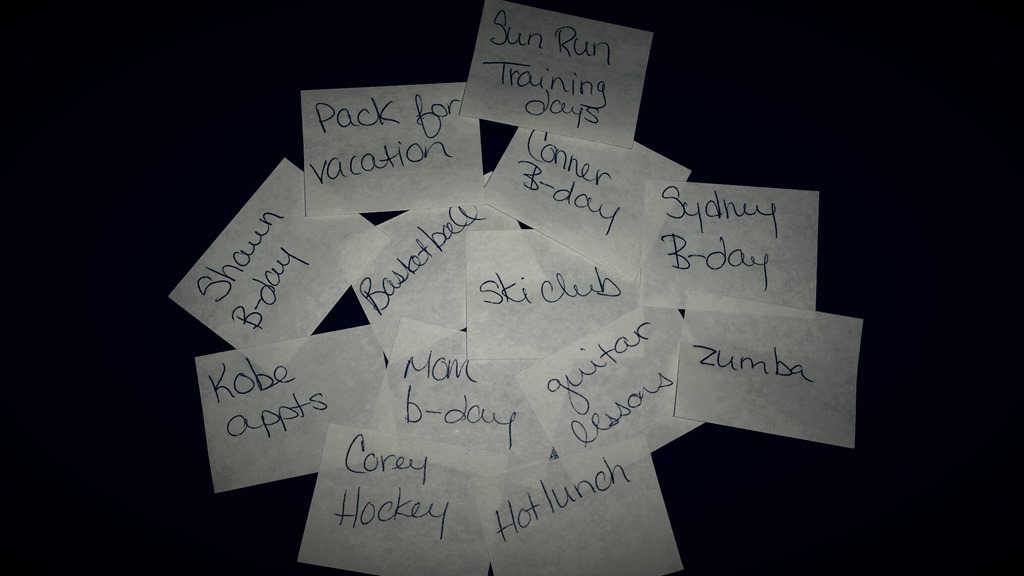 Sun Run
Training
days
Pack for
vacation
Conner
B-day
Sydney
B-day
Shawn
B-day
Basketball
Ski club
Kobe
appts
Mom
b-day
guitar
lessons
zumba
Corey
Hockey
Hot lunch